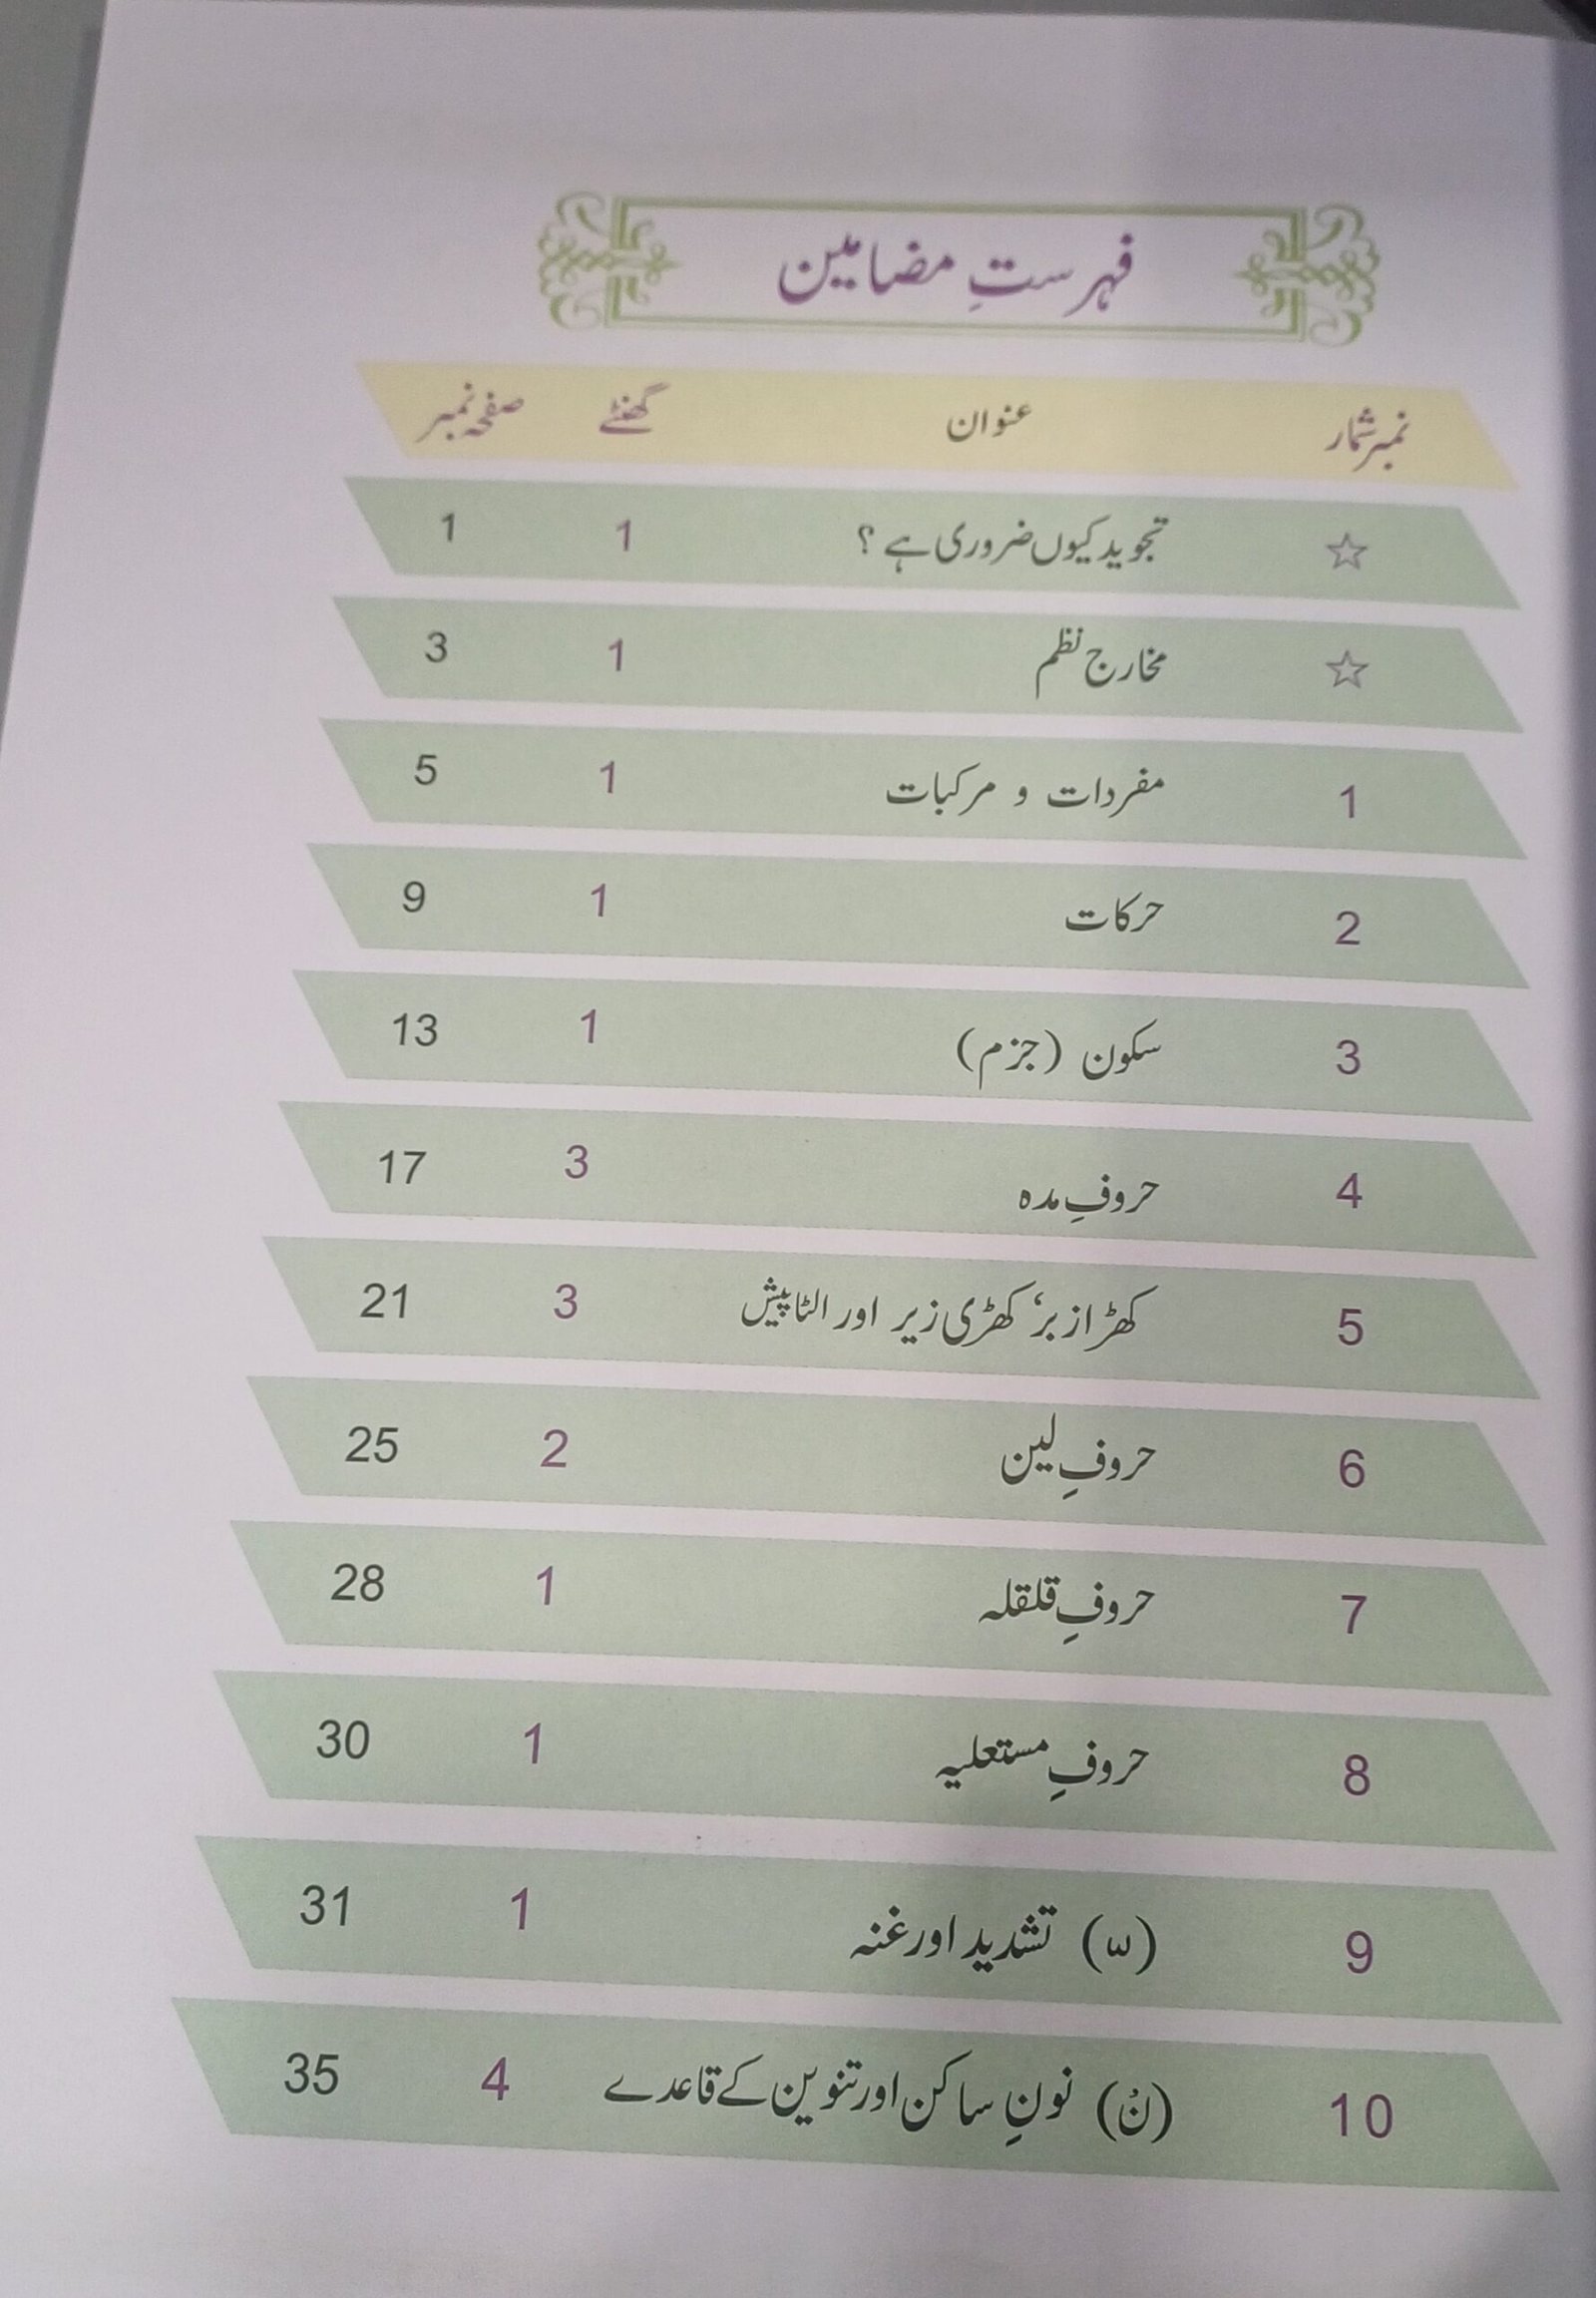 فہرستِ مضامین
نمبر شمار عنوان گھنٹے صفحہ نمبر
☆ تجوید کیوں ضروری ہے ؟ 1 1
☆ مخارج نظم 1 3
1 مفردات و مرکبات 1 5
2 حرکات 1 9
3 سکون (جزم) 1 13
4 حروفِ مدہ 3 17
5 کھڑا زبر، کھڑی زیر اور الٹا پیش 3 21
6 حروفِ لین 2 25
7 حروفِ قلقلہ 1 28
8 حروفِ مستعلیہ 1 30
9 (ّ) تشدید اور غنہ 1 31
10 (نْ) نونِ ساکن اور تنوین کے قاعدے 4 35